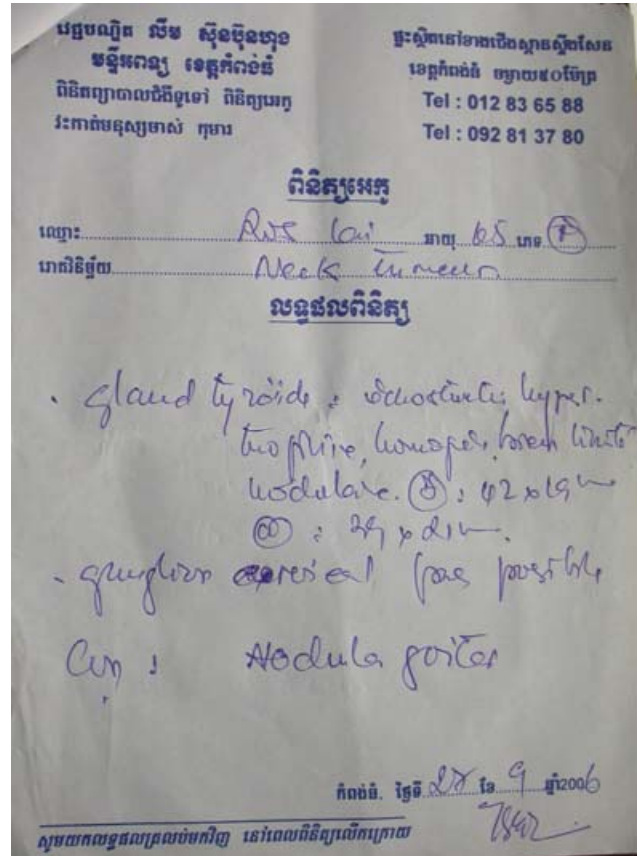 វេជ្ជបណ្ឌិត លឹម ស៊ុនប៊ុនហុង
មន្ទីរពេទ្យ ខេត្តកំពង់ធំ
ពិនិត្យព្យាបាលជំងឺទូទៅ ពិនិត្យអេកូ
វះកាត់មនុស្សចាស់ កុមារ
ផ្ទះស្ថិតនៅខាងជើងស្ពានស្ទឹងសែន
ខេត្តកំពង់ធំ ចម្ងាយ៥០ម៉ែត្រ
Tel : 012 83 65 88
Tel : 092 81 37 80
ពិនិត្យអេកូ
ឈ្មោះ: អាយុ 65 ភេទ F
រោគវិនិច្ឆ័យ Neck tumeur
លទ្ធផលពិនិត្យ
. gland tyroide : hyper-
trophie, bien limité
nodulaire. : 42 x 19
: 39 x 21
- ganglion cervical pas possible
: Nodula goiter
កំពង់ធំ. ថ្ងៃទី 28 ខែ 9 ឆ្នាំ2006
សូមយកលទ្ធផលត្រលប់មកវិញ នៅពេលពិនិត្យលើកក្រោយ